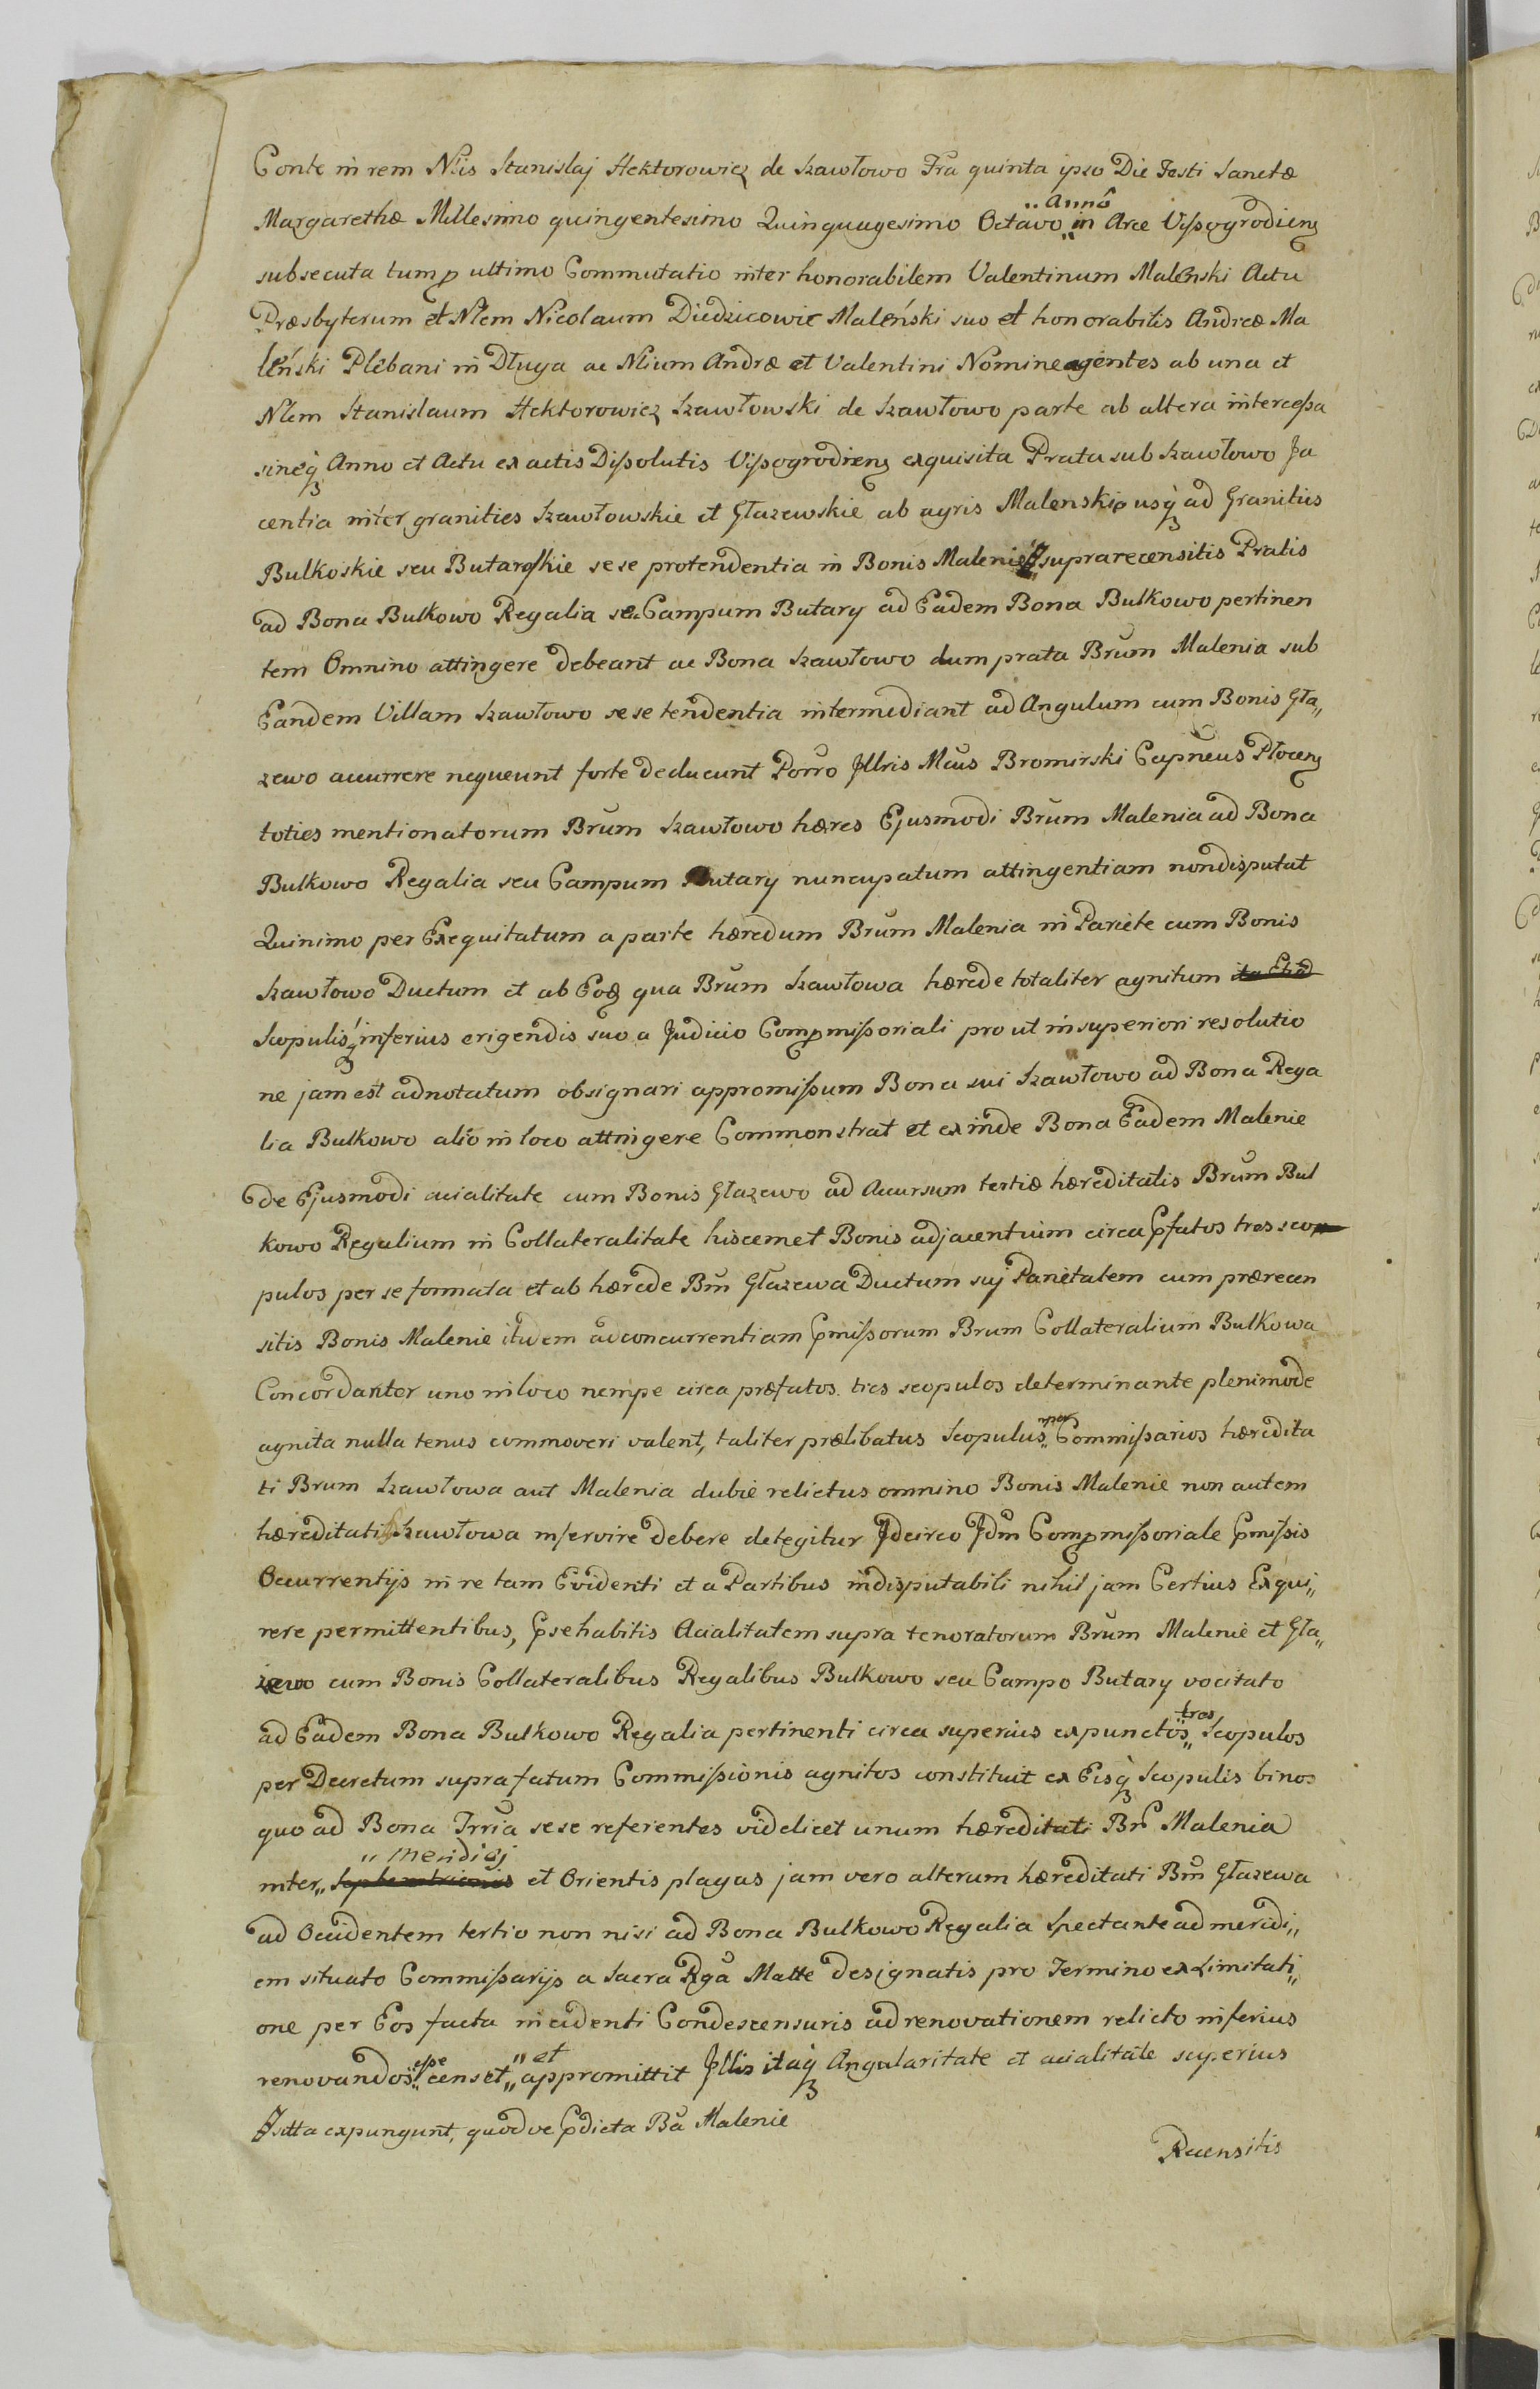 Conte in rem Nlis Stanislaj Hektorowicz de Szawłowo Fra quinta ipso Die Festi Sanctæ
Margarethæ Millesimo quingentesimo Quinquagesimo Octavo „Annô in Arce Vissogrodieng
subsecuta tump ultimo Commutatio inter honorabilem Valentinum Maleński Actu
Præsbyterum et Nlem Nicolaum Diedzicowic Maleński suo et honorabilis Andreæ Ma
leński Plebani in Długa ac Nlium Andræ et Valentini Nomine agentes ab una et
Nlem Stanislaum Hektorowicz Szawłowski de Szawłowo parte ab altera intercessa
sineq3 Anno et Actu ex actis Dissolutis Vissogrodieng exquisita Prata sub Szawłowo Ja
centia inter granities Szawłowskie et Głazewskie ab agris Malenskie usq3 ad Granities
Bulkoskie seu Butarskie sese protendentia in Bonis Malenie suprarecensitis Pratis
ad Bona Bulkowo Regalia seu Campum Butary ad Eadem Bona Bulkowo pertinen
tem Omnino attingere debeant ac Bona Szawłowo dum prata Brum Malenia sub
Eandem Villam Szawłowo sese tendentia intermediant ad Angulum cum Bonis Gła„
zewo accurrere nequeunt forte deducunt Porro Jllris Mcus Bromirski Capneus Płoceng
toties mentionatorum Brum Szawłowo hæres Ejusmodi Brum Malenia ad Bona
Bulkowo Regalia seu Campum Butary nuncupatum attingentiam non disputat
Quinimo per Exequitatum a parte hæredum Brum Malenia in Pariete cum Bonis
Szawłowo Ductum et ab Eoð qua Brum Szawłowa hærede totaliter agnitum
Scopulisq3 inferius erigendis suo a Judicio Compmissoriali pro ut in superiori resolutio
ne jam est adnotatum obsignari appromissum Bona sui Szawłowo ad Bona Rega
lia Bulkowo alio in loco attingere Commonstrat et exinde Bona Eadem Malenie
de Ejusmodi acialitate cum Bonis Głazewo ad Accursum tertiæ hæreditatis Brum Bul
kowo Regalium in Collateralitate hiscemet Bonis adjacentium circa Pfatos tres sco
pulos per se formata et ab hærede Brm Głazewa Ductum suj Parietatem cum prærecen
sitis Bonis Malenie itidem ad concurrentiam Pmissorum Brum Collateralium Bulkowa
Concordanter uno in loco nempe circa præfatos tres scopulos determinante plenimode
agnita nulla tenus commoveri valent, taliter prælibatus Scopulus „per Commissarios hæredita
ti Brum Szawłowa aut Malenia dubie relictus omnino Bonis Malenie non autem
hæreditati Szawłowa inservire debere detegitur Jdcirco Jdm Compmissoriale Pmissis
Occurrentijs in re tam Evidenti et a Partibus indisputabili nihil jam Certius Exqui„
rere permittentibus, Psehabitis Acialitatem supra tenoratorum Brum Malenie et Gła„
zewo cum Bonis Collateralibus Regalibus Bulkowo seu Campo Butary vocitato
ad Eadem Bona Bulkowo Regalia pertinenti circa superius expunctos „tres Scopulos
per Decretum suprafatum Commissionis agnitos constituit ex Eisq3 Scopulis binos
quo ad Bona Trria sese referentes videlicet unum hæreditati Br Malenia
inter „Meridiej Septemtrionis et Orientis plagas jam vero alterum hæreditati Brm Głazewa
ad Occidentem tertio non nisi ad Bona Bulkowo Regalia Spectante ad meridi„
em situato Commissarijs a Sacra Rga Matte designatis pro Termino ex Limitati„
one per Eos facta incidenti Condescensuris ad renovationem relicto inferius
renovandos „esse censet „et appromittit Jllis itaq3 Angularitate et acialitate superius
sitta expungunt, quodve Pdicta Ba Malenie
Recensitis